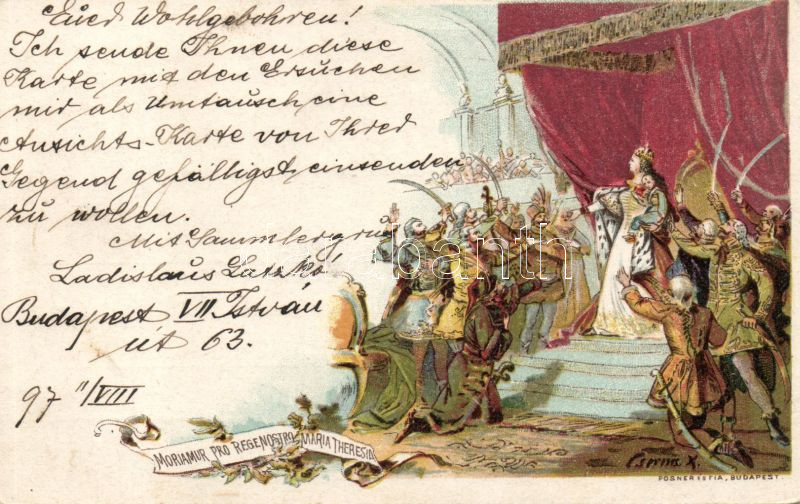 Euer Wohlgebohren!
Ich sende Ihnen diese
Karte mit den Ersuchen
mir als Umtausch eine
Ansichts-Karte von Ihrer
Gegend gefälligst einsenden
zu wollen.
Mit Sammlergruß
Ladislaus
Budapest VII István
út 63.
97 11/VIII
MORIAMUR PRO REGE NOSTRO MARIA THERESIA
Cserna K.
POSNER ES FIA, BUDAPEST.
darabanth